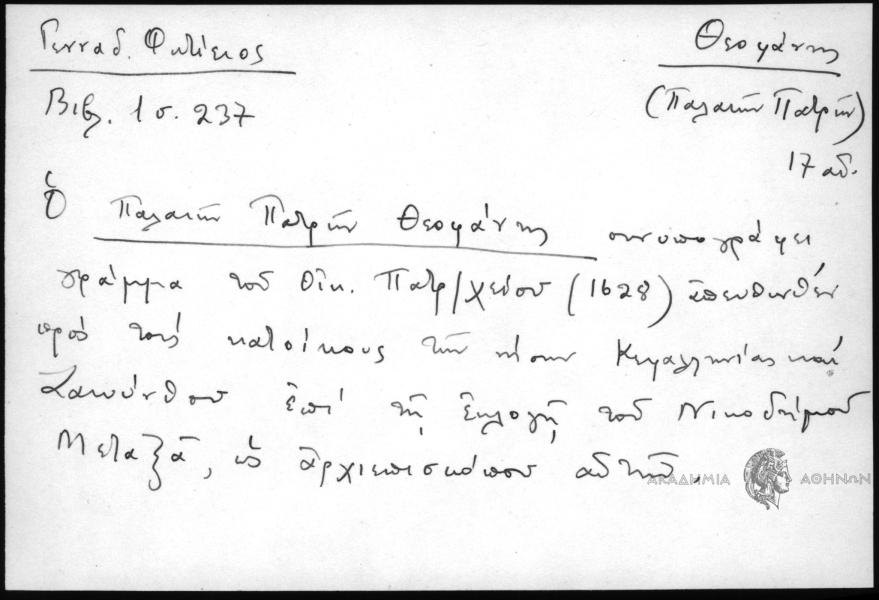 Γενναδ. Φωτίειος
Θεοφάνης
Βιβλ. 1 σ. 237
(Παλαιῶν Πατρῶν)
17 αἰ.
Ὁ Παλαιῶν Πατρῶν Θεοφάνης συνυπογράφει
γράμμα τοῦ Οἰκ. Πατρ/χείου (1628) ἀπευθυνθέν
πρός τούς κατοίκους τῶν νήσων Κεφαλληνίας καί
Ζακύνθου ἐπί τῇ ἐκλογῇ τοῦ Νικοδήμου
Μεταξᾶ, ὡς ἀρχιεπισκόπου αὐτῶν.
ΑΚΑΔΗΜΙΑ ΑΘΗΝΩΝ